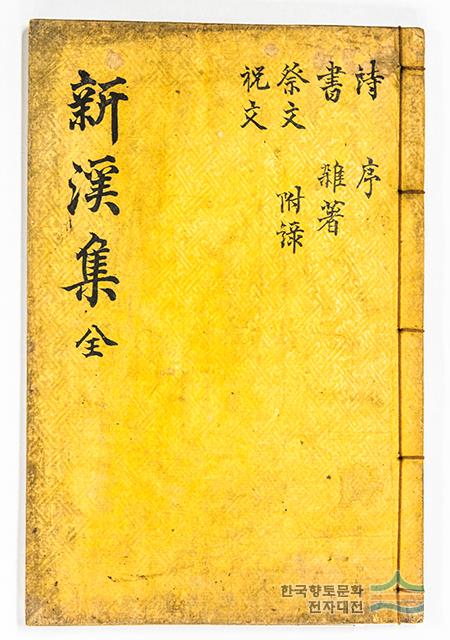 詩 序
書 雜著
祭文 附錄
祝文
新溪集 全
한국향토문화
전자대전